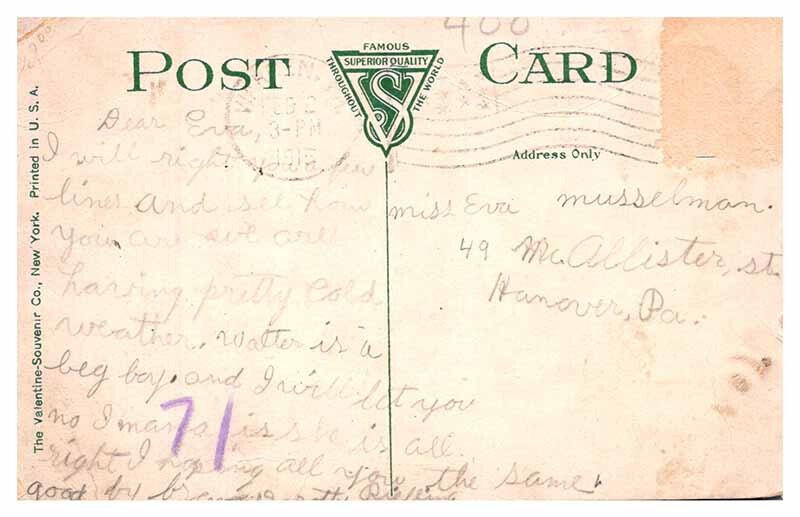 400
POST CARD
FAMOUS
SUPERIOR QUALITY
THROUGHOUT THE WORLD
VS
3-PM
Address Only
The Valentine-Souvenir Co., New York. Printed in U. S. A.
Dear Eva,
I will right you a few
lines and see how
you are we are
having pretty cold
weather. Walter is a
beg boy. and I will let you
no I mama is she is all
right I hoping all you the same.
good by
71
miss Eva musselman.
49 Mc.Allister, st.
Hanover, Pa.